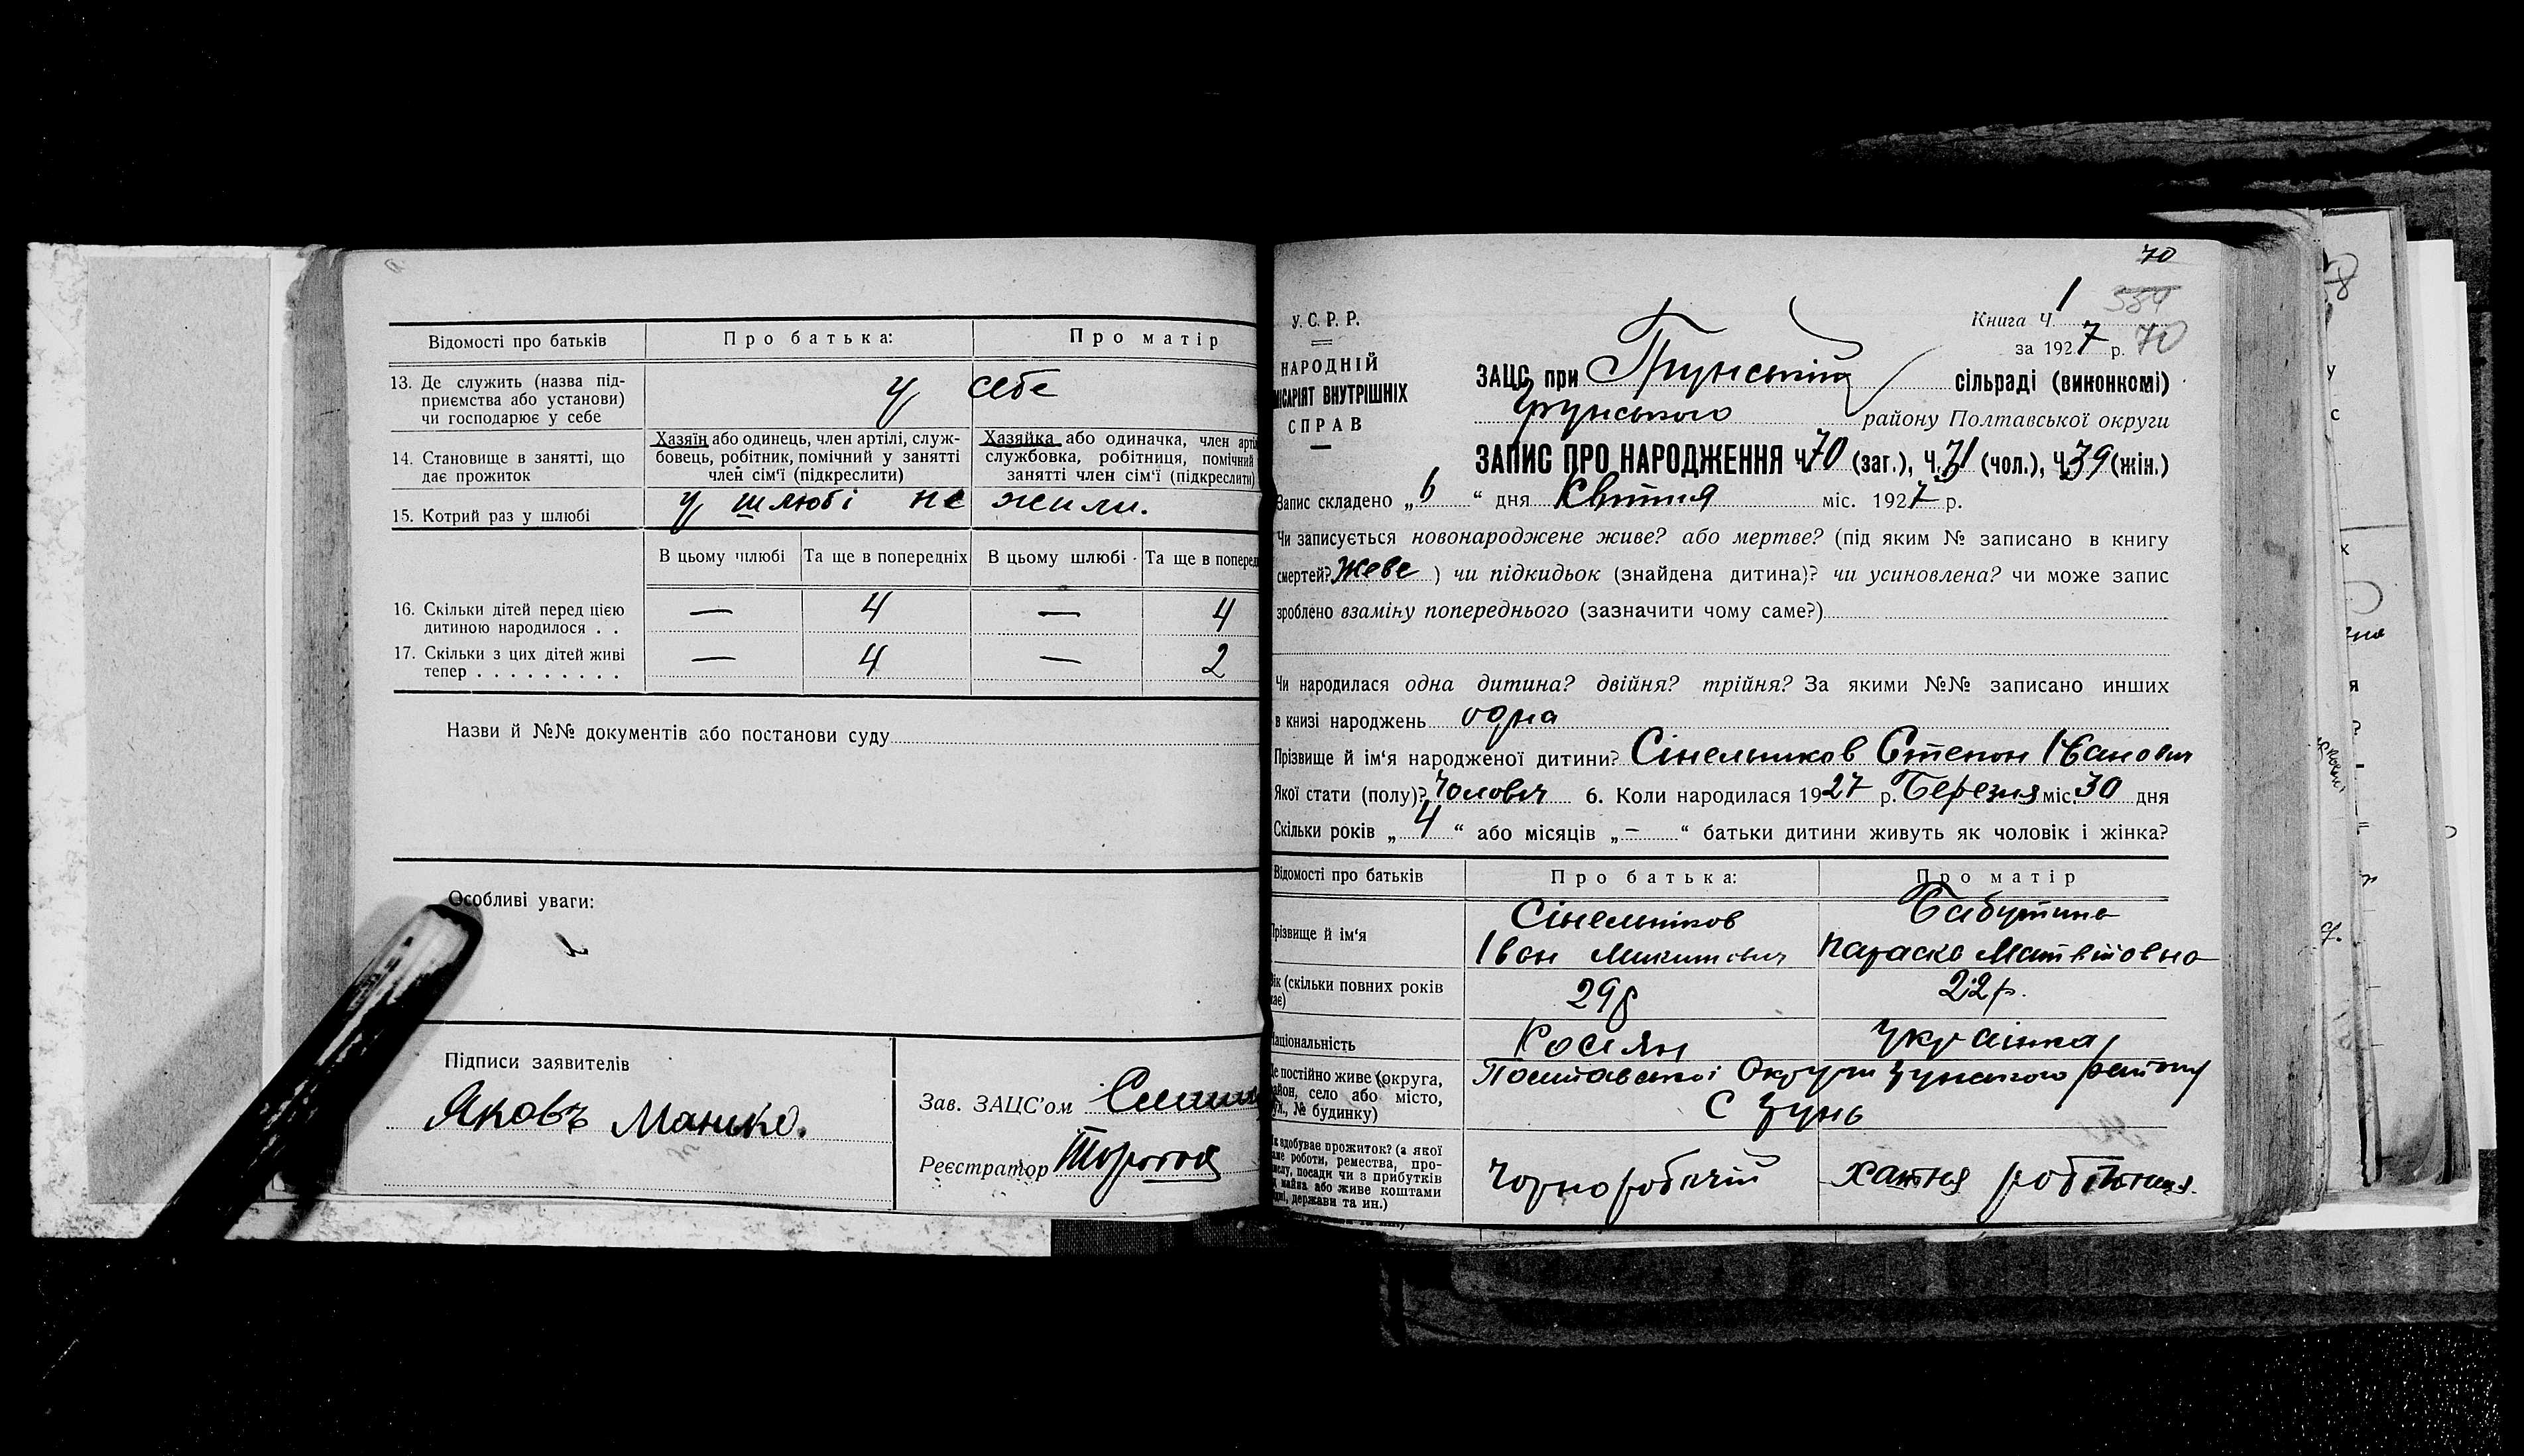 Відомості про батьків
Про батька:
Про матір
13. Де служить (назва під-
приємства або установи)
чи господарює у себе
у себе
14. Становище в занятті, що
дає прожиток
Хазяїн або одинець, член артілі, служ-
бовець, робітник, помічний у занятті
член сім'ї (підкреслити)
Хазяйка або одиначка, член арті
службовка, робітниця, помічний
занятті член сім'ї (підкреслити)
15. Котрий раз у шлюбі
у шлюбі не жили.
В цьому шлюбі
Та ще в попередніх
В цьому шлюбі
Та ще в поперед
16. Скільки дітей перед цією
дитиною народилося . .
— 4 — 4
17. Скільки з цих дітей живі
тепер . . . . . . . . .
— 4 — 2
Назви й №№ документів або постанови суду
Особливі уваги:
Підписи заявителів
Яковъ Манько.
Зав. ЗАЦС'ом
Реєстратор
70
У.С.Р.Р.
НАРОДНІЙ
МІСАРІЯТ ВНУТРІШНІХ
СПРАВ
Книга Ч. 1 584
за 1927 р. 70
ЗАЦС при Грунській сільраді (виконкомі)
Грунського району Полтавської округи
ЗАПИС ПРО НАРОДЖЕННЯ Ч. 70 (заг.), Ч. 31 (чол.), Ч. 39 (жін.)
Запис складено „6“ дня Квітня міс. 1927 р.
Чи записується новонароджене живе? або мертве? (під яким № записано в книгу
смертей? Жеве) чи підкидьок (знайдена дитина)? чи усиновлена? чи може запис
зроблено взаміну попереднього (зазначити чому саме?)
Чи народилася одна дитина? двійня? трійня? За якими №№ записано инших
в книзі народжень одна
Прізвище й ім'я народженої дитини? Сінельников Степон Іванович
Якої стати (полу)? Чоловіч 6. Коли народилася 1927 р. Березня міс. 30 дня
Скільки років „4“ або місяців „—“ батьки дитини живуть як чоловік і жінка?
Відомості про батьків
Про батька:
Про матір
Прізвище й ім'я
Сінельніков
Іван Микитович
Бабутина
Параска Матвійовна
Вік (скільки повних років
має)
29 р
22 р.
Національність
Росіян
Українка
Де постійно живе (округа,
район, село або місто,
вул., № будинку)
Полтавської Округи Грунського району
С Грунь
Як здобуває прожиток? (з якої
саме роботи, ремества, про-
мислу, посади чи з прибутків
з майна або живе коштами
рідні, держави та ин.)
Чорноробочій
хатня робітниця.